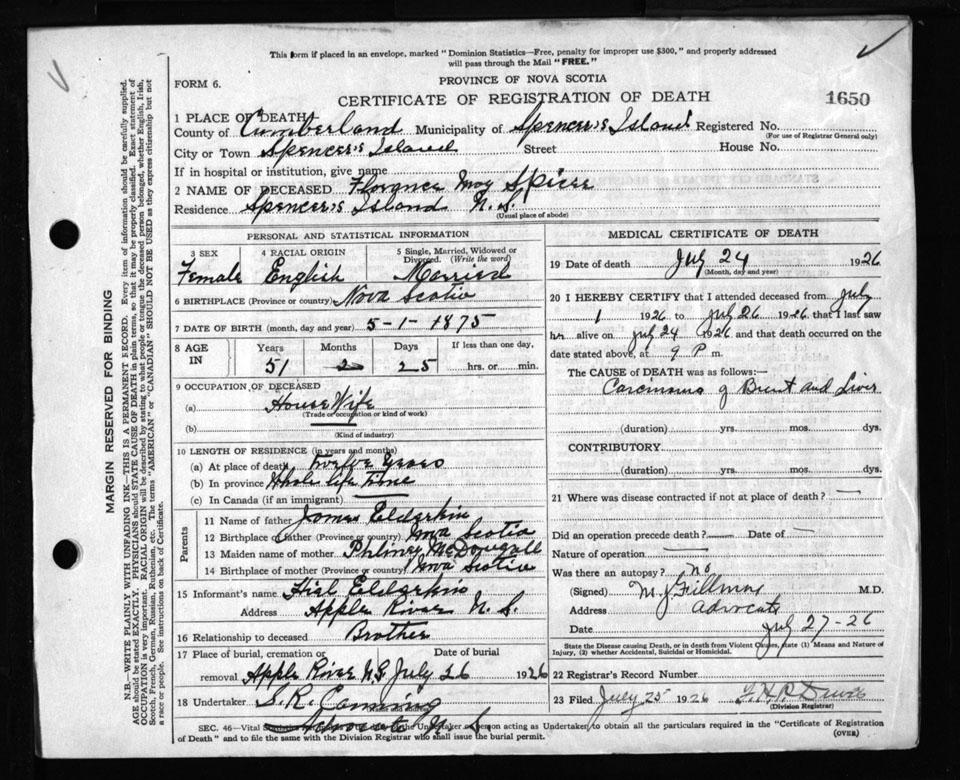 This form if placed in an envelope, marked "Dominion Statistics—Free, penalty for improper use $300," and properly addressed
will pass through the Mail "FREE."
FORM 6.
PROVINCE OF NOVA SCOTIA
CERTIFICATE OF REGISTRATION OF DEATH
1650
1 PLACE OF DEATH
County of Cumberland Municipality of Spencer's Island Registered No.
(For use of Registrar General only)
City or Town Spencer's Island Street House No.
If in hospital or institution, give name
2 NAME OF DECEASED Florance May Spicer
Residence Spencer's Island N. S.
(Usual place of abode)
PERSONAL AND STATISTICAL INFORMATION
3 SEX 4 RACIAL ORIGIN 5 Single, Married, Widowed or
Divorced. (Write the word)
Female English Married
6 BIRTHPLACE (Province or country) Nova Scotia
7 DATE OF BIRTH (month, day and year) 5-1-1875
8 AGE IN Years Months Days If less than one day,
51 2 25 hrs. or min.
9 OCCUPATION OF DECEASED
(a) House Wife
(Trade or occupation or kind of work)
(b)
(Kind of industry)
10 LENGTH OF RESIDENCE (in years and months)
(a) At place of death, twelve years
(b) In province Whole life time
(c) In Canada (if an immigrant)
Parents
11 Name of father James Elderkin
12 Birthplace of father (Province or country) Nova Scotia
13 Maiden name of mother McDougall
14 Birthplace of mother (Province or country) Nova Scotia
15 Informant's name Elderkin
Address Apple River N. S.
16 Relationship to deceased Brother
17 Place of burial, cremation or Date of burial
removal Apple River N.S July 26 1926
18 Undertaker S. R. Canning
Advocate N. S
MEDICAL CERTIFICATE OF DEATH
19 Date of death July 24 1926
(Month, day and year)
20 I HEREBY CERTIFY that I attended deceased from July
1 1926 to July 26 1926 that I last saw
her alive on July 24 1926 and that death occurred on the
date stated above, at 9 P m.
The CAUSE of DEATH was as follows:—
Carcinoma of Breast and Liver
(duration) yrs. mos. dys.
CONTRIBUTORY.
(duration) yrs. mos. dys.
21 Where was disease contracted if not at place of death? —
Did an operation precede death? — Date of —
Nature of operation —
Was there an autopsy? No
(Signed) M. J. Fillmore M.D.
Address Advocate
Date July 27-26
State the Disease causing Death, or in death from Violent Causes, state (1) Means and Nature of
Injury, (2) whether Accidental, Suicidal or Homicidal.
22 Registrar's Record Number
23 Filed July 25 1926
(Division Registrar)
SEC. 46—Vital Undertaker or person acting as Undertaker to obtain all the particulars required in the "Certificate of Registration
of Death" and to file the same with the Division Registrar who shall issue the burial permit.
(OVER)
MARGIN RESERVED FOR BINDING
N.B.—WRITE PLAINLY WITH UNFADING INK—THIS IS A PERMANENT RECORD. Every item of information should be carefully supplied.
AGE should be stated EXACTLY. PHYSICIANS should STATE CAUSE OF DEATH in plain terms, so that it may be properly classified. Exact statement of
OCCUPATION is very important. RACIAL ORIGIN will be described by stating to what people or tongue the deceased person belonged, whether English, Irish,
Scotch, French, German, Russian, Ruthenian, etc. The terms "AMERICAN" or "CANADIAN" SHOULD NOT BE USED as they express citizenship but not
a race or people. See instructions on back of Certificate.